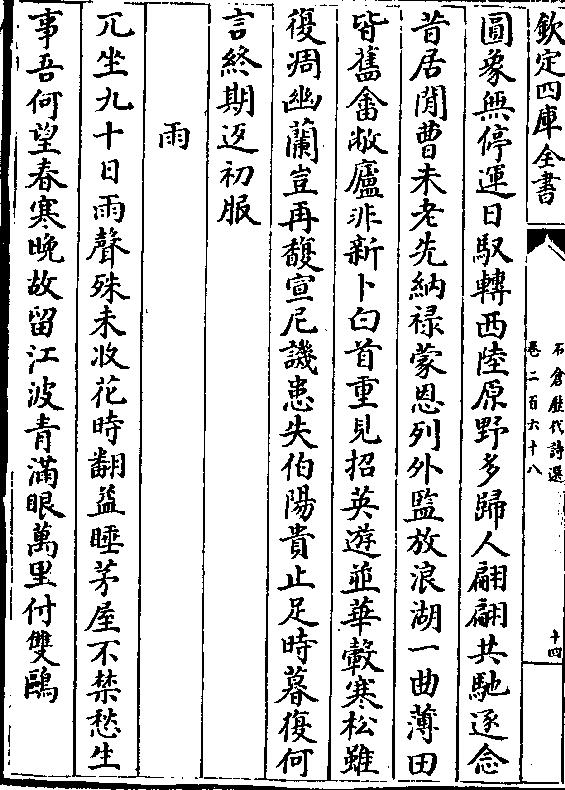 欽定四庫全書
石倉歷代詩選
卷二百六十八
十四
圓象無停運日馭轉西陸原野多歸人翩翩共馳逐念
昔居閒曹未老先納禄蒙恩列外監放浪湖一曲薄田
皆舊畬敝廬非新卜白首重見招英遊並華轂寒松雖
復凋幽蘭豈再馥宣尼譏患失伯陽貴止足時暮復何
言終期返初服
雨
兀坐九十日雨聲殊未收花時翻益睡茅屋不禁愁生
事吾何望春寒晚故留江波青滿眼萬里付雙鷗